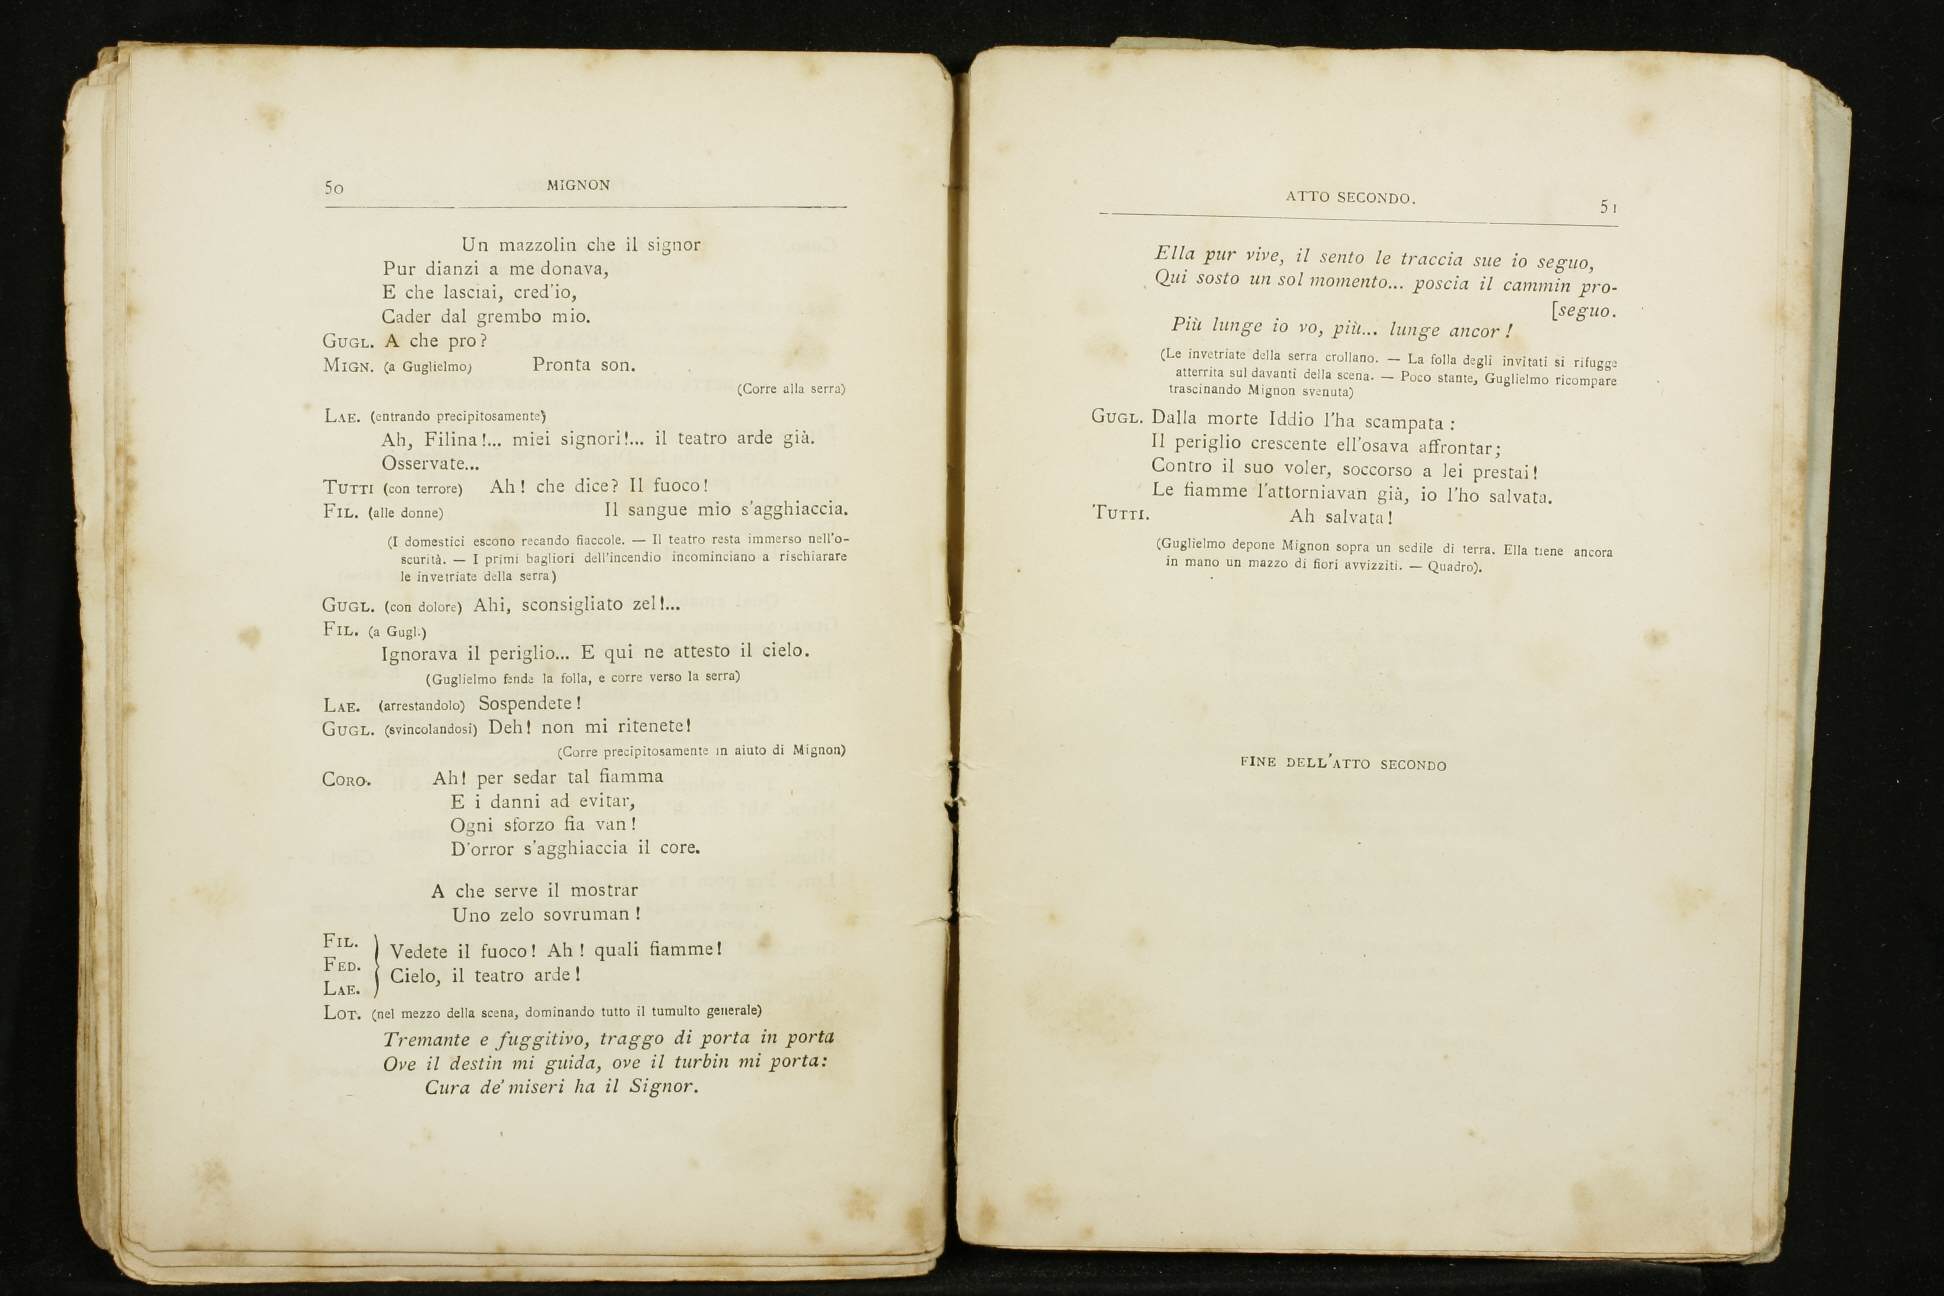 50 MIGNON
Un mazzolin che il signor
Pur dianzi a me donava,
E che lasciai, cred'io,
Cader dal grembo mio.
GUGL. A che pro?
MIGN. (a Guglielmo) Pronta son.
(Corre alla serra)
LAE. (entrando precipitosamente)
Ah, Filina!... miei signori!... il teatro arde già.
Osservate...
TUTTI (con terrore) Ah! che dice? Il fuoco!
FIL. (alle donne) Il sangue mio s'agghiaccia.
(I domestici escono recando fiaccole. — Il teatro resta immerso nell'o-
scurità. — I primi bagliori dell'incendio incominciano a rischiarare
le invetriate della serra)
GUGL. (con dolore) Ahi, sconsigliato zel!...
FIL. (a Gugl.)
Ignorava il periglio... E qui ne attesto il cielo.
(Guglielmo fende la folla, e corre verso la serra)
LAE. (arrestandolo) Sospendete!
GUGL. (svincolandosi) Deh! non mi ritenete!
(Corre precipitosamente in aiuto di Mignon)
CORO. Ah! per sedar tal fiamma
E i danni ad evitar,
Ogni sforzo fia van!
D'orror s'agghiaccia il core.
A che serve il mostrar
Uno zelo sovruman!
FIL.
FED.
LAE.
Vedete il fuoco! Ah! quali fiamme!
Cielo, il teatro arde!
LOT. (nel mezzo della scena, dominando tutto il tumulto generale)
Tremante e fuggitivo, traggo di porta in porta
Ove il destin mi guida, ove il turbin mi porta:
Cura de' miseri ha il Signor.
ATTO SECONDO. 51
Ella pur vive, il sento le traccia sue io seguo,
Qui sosto un sol momento... poscia il cammin pro-
[seguo.
Più lunge io vo, più... lunge ancor!
(Le invetriate della serra crollano. — La folla degli invitati si rifugge
atterrita sul davanti della scena. — Poco stante, Guglielmo ricompare
trascinando Mignon svenuta)
GUGL. Dalla morte Iddio l'ha scampata:
Il periglio crescente ell'osava affrontar;
Contro il suo voler, soccorso a lei prestai!
Le fiamme l'attorniavan già, io l'ho salvata.
TUTTI. Ah salvata!
(Guglielmo depone Mignon sopra un sedile di terra. Ella tiene ancora
in mano un mazzo di fiori avvizziti. — Quadro).
FINE DELL'ATTO SECONDO